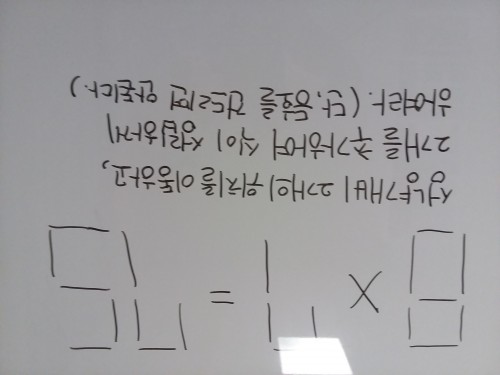 8 × 7 = 75
성냥개비 2개의 위치를 이동하고,
2개를 추가하여 식이 성립하게
하여라. (단, 등호를 건드리면 안된다.)